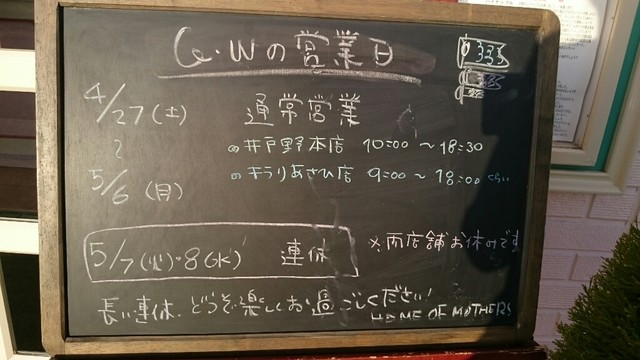 G・Wの営業日
4/27(土) 通常営業
の井戸野本店 10:00 〜 18:30
〜
のきらりあさひ店 9:00 〜 18:00くらい
5/6 (月)
5/7(火)・8(水) 連休 ※両店舗お休みです
長い連休、どうぞ楽しくお過ごしください!
HOME OF MOTHERS